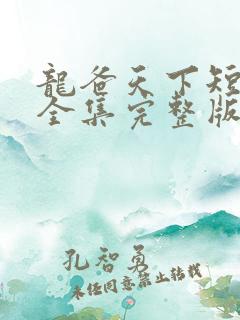 龍爸天下短
全集完整版
孔智勇
未经同意禁止转载